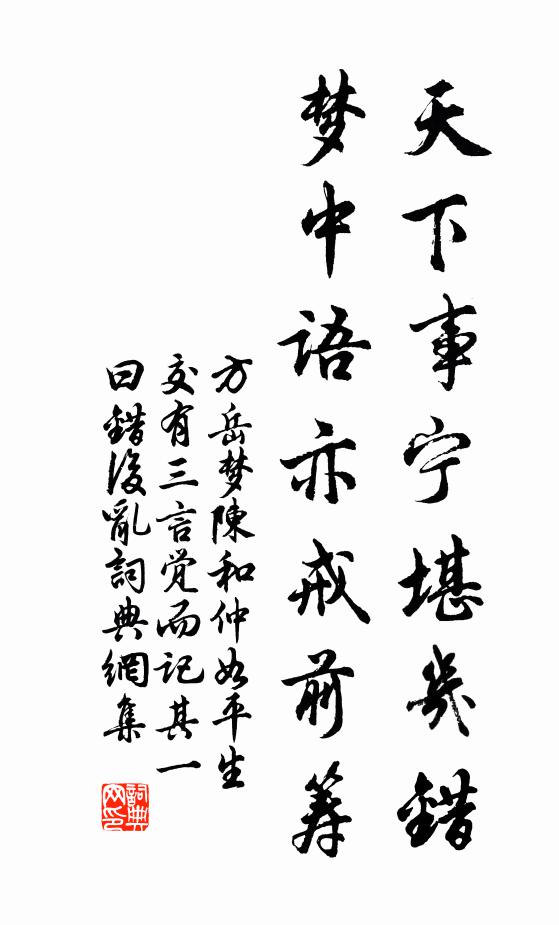 天下事宁堪幾錯
梦中語亦戒前筹
方岳梦陳和仲如平生
交有三言覚而記其一
曰錯後亂詞典網集
詞典网印